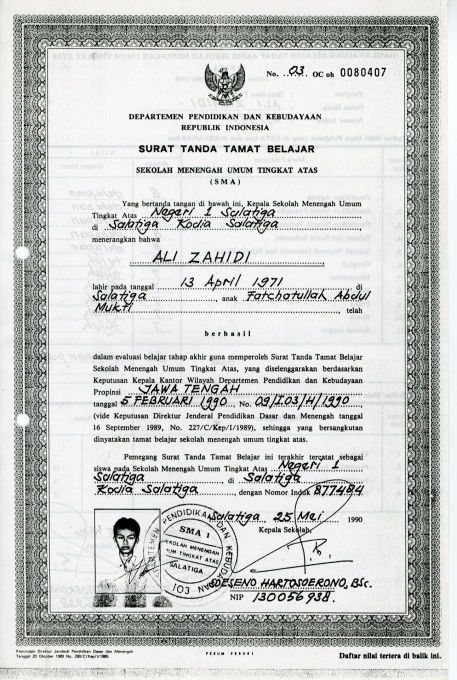 No. 03 OC oh 0080407
DEPARTEMEN PENDIDIKAN DAN KEBUDAYAAN
REPUBLIK INDONESIA
SURAT TANDA TAMAT BELAJAR
SEKOLAH MENENGAH UMUM TINGKAT ATAS
(SMA)
Yang bertanda tangan di bawah ini, Kepala Sekolah Menengah Umum
Tingkat Atas Negeri 1 Salatiga
di Salatiga Kodia Salatiga
menerangkan bahwa
ALI ZAHIDI
lahir pada tanggal 13 April 1971 di
Salatiga, anak Fatchatullah Abdul
Mukti, telah
berhasil
dalam evaluasi belajar tahap akhir guna memperoleh Surat Tanda Tamat Belajar
Sekolah Menengah Umum Tingkat Atas, yang diselenggarakan berdasarkan
Keputusan Kepala Kantor Wilayah Departemen Pendidikan dan Kebudayaan
Propinsi JAWA TENGAH
tanggal 5 FEBRUARI 1990, No. 09/I.03/H/1990
(vide Keputusan Direktur Jenderal Pendidikan Dasar dan Menengah tanggal
16 September 1989, No. 227/C/Kep/I/1989), sehingga yang bersangkutan
dinyatakan tamat belajar sekolah menengah umum tingkat atas.
Pemegang Surat Tanda Tamat Belajar ini terakhir tercatat sebagai
siswa pada Sekolah Menengah Umum Tingkat Atas Negeri 1
Salatiga di Salatiga
Kodia Salatiga, dengan Nomor Induk 877484
Salatiga, 25 Mei 1990
Kepala Sekolah,
DEPARTEMEN PENDIDIKAN DAN KEBUDAYAAN
SMA 1
SEKOLAH MENENGAH
UMUM TINGKAT ATAS
SALATIGA
103
SOESENO HARTOSOERONO, BSc.
NIP 130056938.
Keputusan Direktur Jenderal Pendidikan Dasar dan Menengah
Tanggal 20 Oktober 1989 No. 260/C/Kep/I/1989.
PERUM PERURI
Daftar nilai tertera di balik ini.